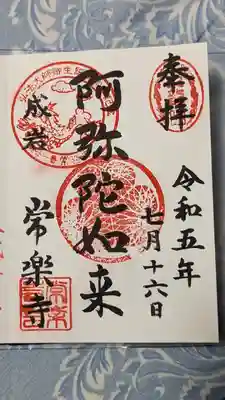 奉拝
令和五年
七月十六日
阿弥陀如来
成岩
常楽寺